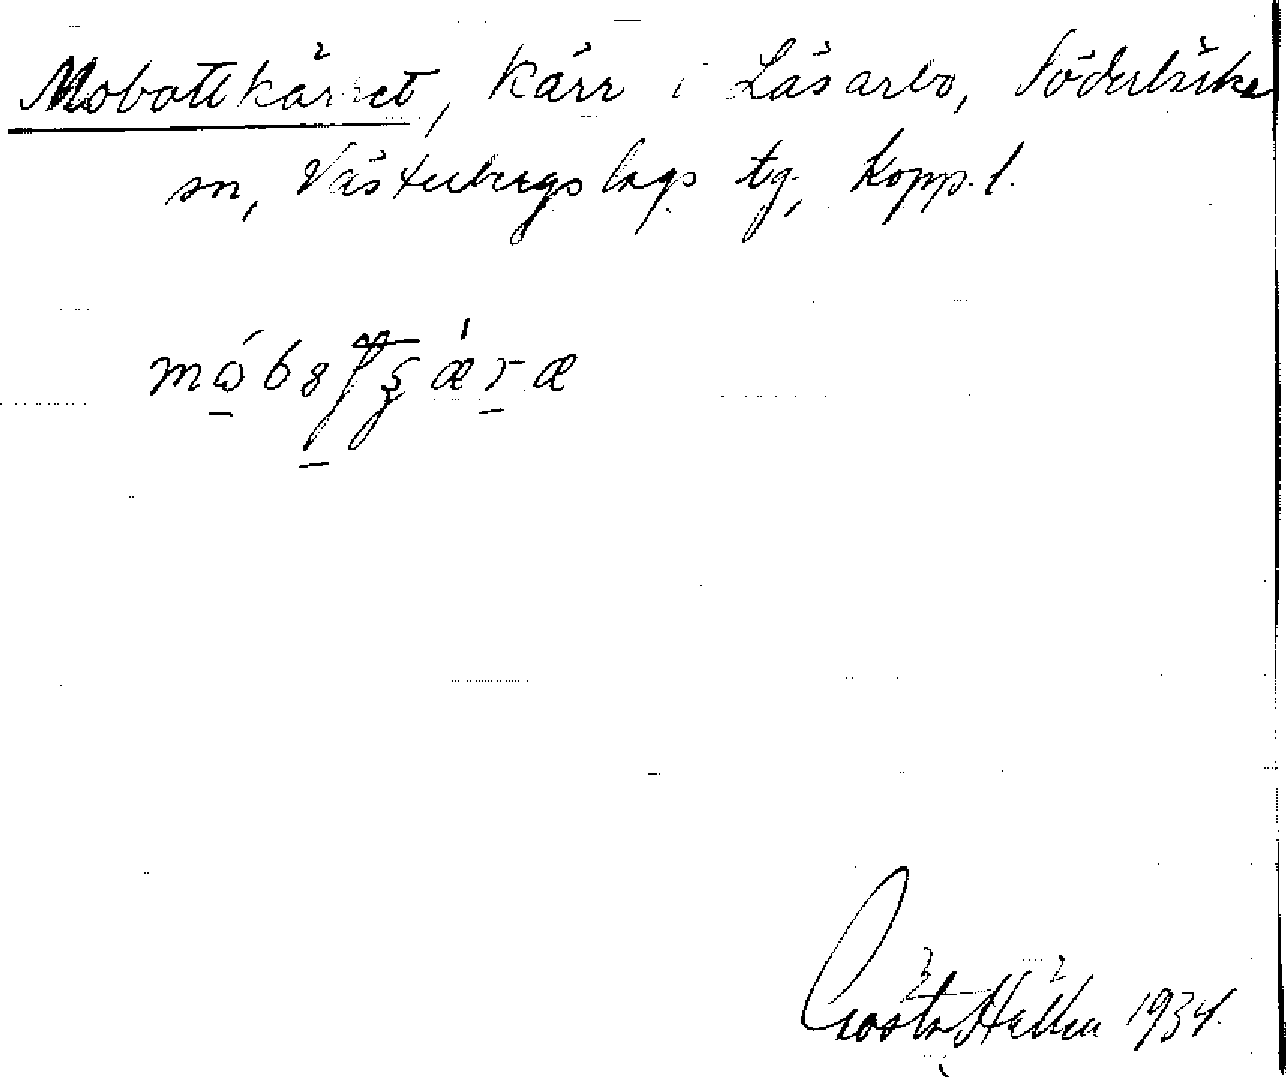 Mobottkärret, kärr i Läsarbo, Söderbärke
sn, Västerbergslags tg, Kopp. l.
Gösta Hållen 1934.